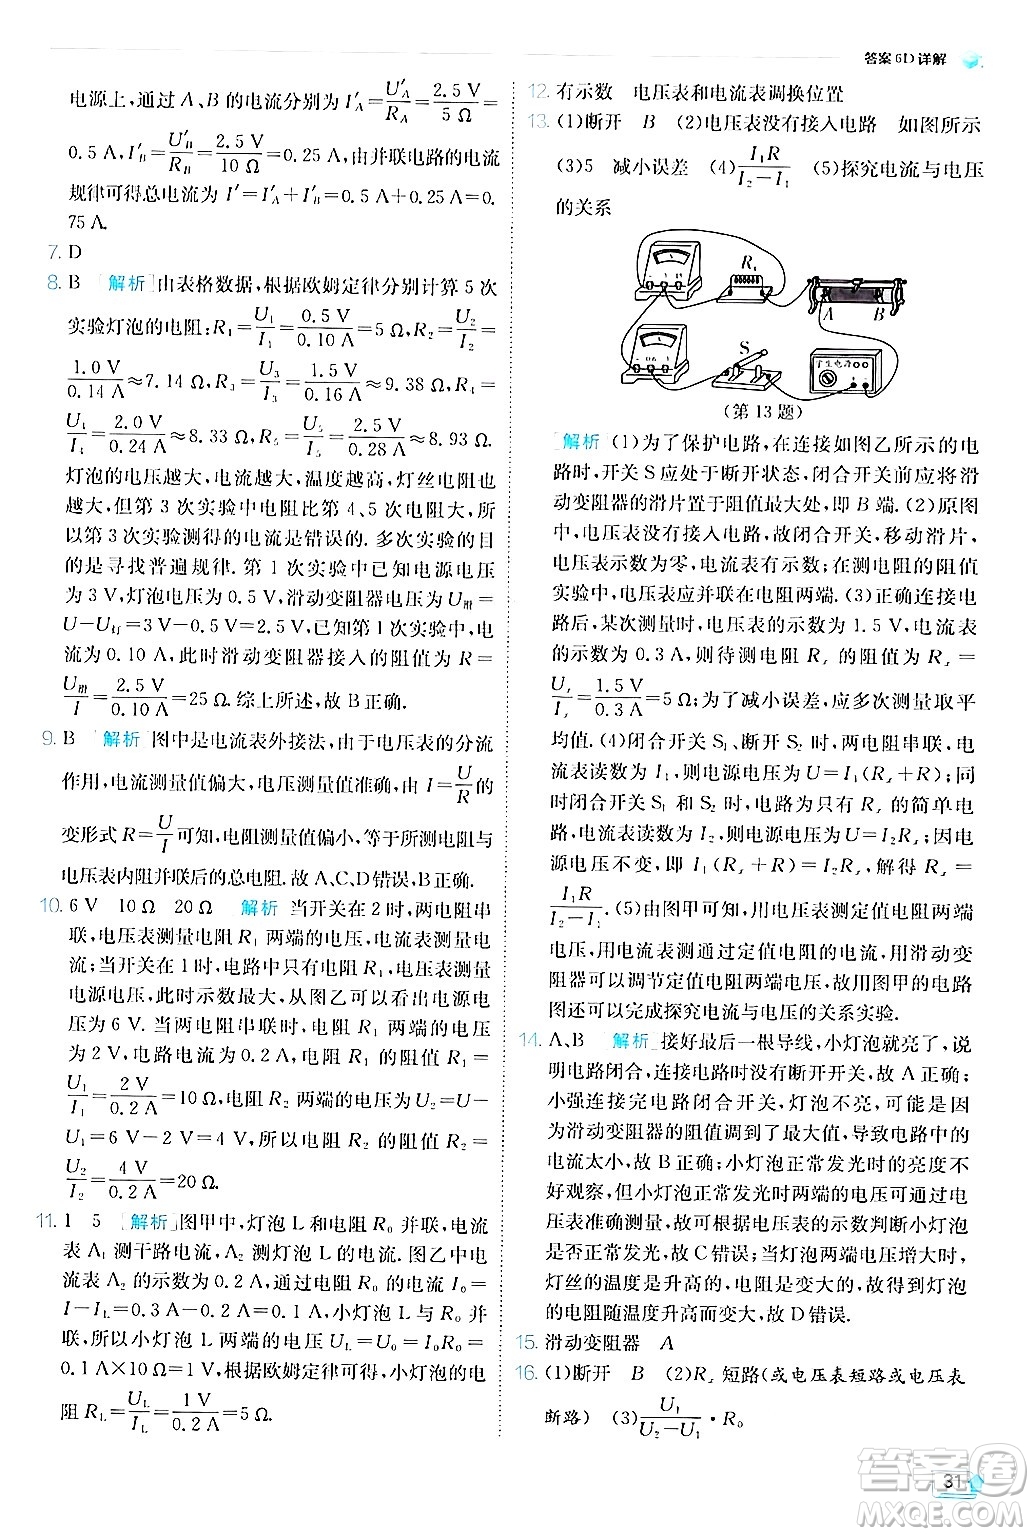 答案 6D 详解
电源上，通过 A、B 的电流分别为 I′A=U′A/RA=2.5 V/5 Ω=
0.5 A，I′B=U′B/RB=2.5 V/10 Ω=0.25 A，由并联电路的电流
规律可得总电流为 I′=I′A+I′B=0.5 A+0.25 A=0.
75 A.
7. D
8. B [解析] 由表格数据，根据欧姆定律分别计算 5 次
实验灯泡的电阻：R1=U1/I1=0.5 V/0.10 A=5 Ω，R2=U2/I2=
1.0 V/0.14 A≈7.14 Ω，R3=U3/I3=1.5 V/0.16 A≈9.38 Ω，R4=
U4/I4=2.0 V/0.24 A≈8.33 Ω，R5=U5/I5=2.5 V/0.28 A≈8.93 Ω.
灯泡的电压越大，电流越大，温度越高，灯丝电阻也
越大，但第 3 次实验中电阻比第 4、5 次都要大，所
以第 3 次实验测得的电流是错误的. 多次实验的目
的是寻找普遍规律. 第 1 次实验中已知电源电压
为 3 V，灯泡电压为 0.5 V，滑动变阻器电压为 U滑=
U－U灯=3 V－0.5 V=2.5 V，已知第 1 次实验中电
流为 0.10 A，此时滑动变阻器接入的阻值为 R=
U滑/I=2.5 V/0.10 A=25 Ω. 综上所述，故 B 正确.
9. B [解析] 图中是电流表外接法，由于电压表的分流
作用，电流测量值偏大，电压测量值准确，由 I=U/R
变形式 R=U/I可知，电阻测量值偏小，等于所测电阻与
电压表内阻并联后的总电阻. 故 A、C、D 错误，B 正确.
10. 6 V 10 Ω 20 Ω [解析] 当开关在 2 时，两电阻串
联，电压表测量电阻 R1 两端的电压，电流表测量电
流；当开关在 1 时，电路中只有电阻 R1，电压表测量
电源电压，此时示数最大，从图乙可以看出电源电压
为 6 V. 当两电阻串联时，电阻 R1 两端的电压
为 2 V，电路电流为 0.2 A，电阻 R1 的阻值 R1=
U1/I1=2 V/0.2 A=10 Ω，电阻 R2 两端的电压为 U2=U－
U1=6 V－2 V=4 V，所以电阻 R2 的电阻 R2=
U2/I2=4 V/0.2 A=20 Ω.
11. 1 5 [解析] 图甲中，灯泡 L 和电阻 R0 并联，电流
表 A1 测干路电流，A2 测灯泡 L 的电流. 图乙中电
流表 A2 的示数为 0.2 A，通过电阻 R0 的电流 I0=
I－IL=0.3 A－0.2 A=0.1 A，小灯泡 L 与 R0 并
联，所以小灯泡 L 两端的电压 UL=U0=I0R0=
0.1 A×10 Ω=1 V. 根据欧姆定律可得，小灯泡的电
阻 RL=UL/IL=1 V/0.2 A=5 Ω.
12. 有示数 电压表和电流表调换位置
13. (1)断开 B (2)电压表没有接入电路 如图所示
(3)5 减小误差 (4)I1R/(I2－I1) (5)探究电流与电压
的关系
A B
S
学生电源
(第 13 题)
[解析] (1)为了保护电路，在连接如图乙所示的电
路时，开关 S 应处于断开状态，闭合开关前应将滑
动变阻器的滑片置于阻值最大处，即 B 端. (2)原图
中，电压表没有接入电路，故闭合开关，移动滑片，
电压表示数为零，电流表有示数；在测电阻的阻值
实验中，电压表应并联在电阻两端. (3)正确连接电
路后，某次测量时，电压表的示数为 1.5 V，电流表
的示数为 0.3 A，则待测电阻 Rx 的阻值为 Rx=
Ux/Ix=1.5 V/0.3 A=5 Ω；为了减小误差，应多次测量取平
均值. (4)闭合开关 S1、断开 S2 时，两电阻串联，电
流表读数为 I1，则电源电压为 U=I1(Rx+R)；同
时闭合开关 S1 和 S2 时，电路中只有 Rx 的简单电
路，电流表读数为 I2，则电源电压为 U=I2Rx，因电
源电压不变，即 I1(Rx+R)=I2Rx，解得 Rx=
I1R/(I2－I1). (5)由图甲可知，用电压表测定值电阻两端
电压，用电流表测通过定值电阻的电流，用滑动变
阻器可以调节定值电阻两端电压，故利用图甲的电路
图还可以完成探究电流与电压的关系实验.
14. A、B [解析] 接好最后一根导线，小灯泡就亮了，说
明电路闭合，连接电路时没有断开开关，故 A 正确；
小强连接完电路闭合开关，灯泡不亮，可能是因
为滑动变阻器的阻值调到了最大值，导致电路中的
电流太小，故 B 正确；小灯泡正常发光时的亮度不
易观察，但小灯泡正常发光时两端的电压可通过电
压表准确测量，故可由电压表的示数判断小灯泡
是否正常发光，故 C 错误；当灯泡两端电压增大时，
灯丝的温度是升高的，电阻是变大的，故小灯泡
的电阻随温度升高而变大，故 D 错误.
15. 滑动变阻器 A
16. (1)断开 B (2)Rx 短路(或电压表短路或电压表
断路) (3)U1/(U2－U1)·R0
31
答案圈
MXQE.COM